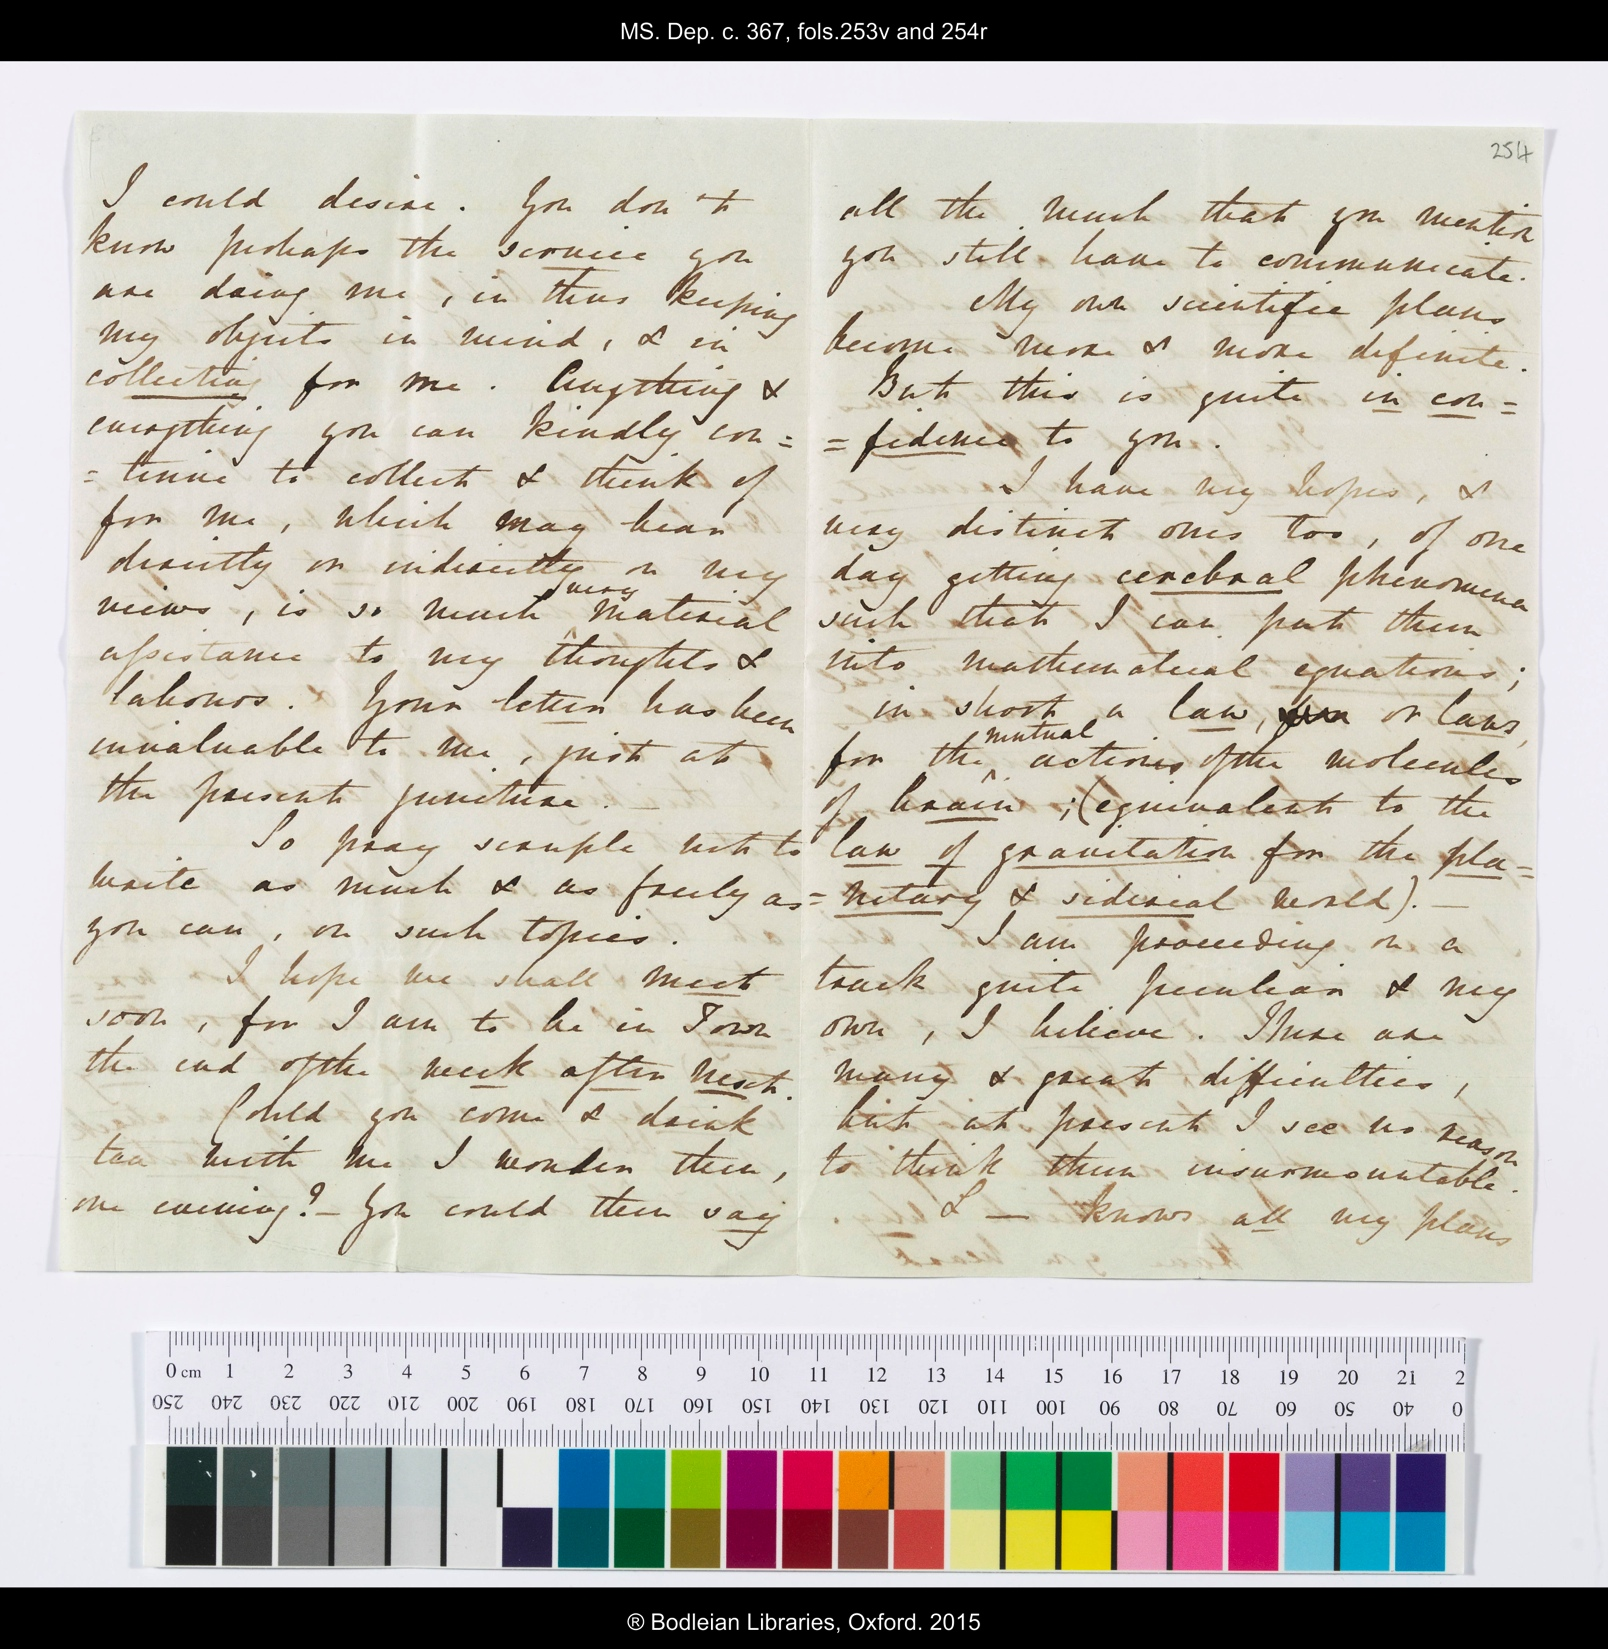 MS. Dep. c. 367, fols.253v and 254r
I could desire. You don't
know perhaps the service you
are doing me, in thus keeping
my objects in mind, & in
collecting for me. Anything &
everything you can kindly con=
=tinue to collect & think of
for me, which may bear
directly or indirectly on my
views, is so much very material
assistance to my thoughts &
labours. Your letter has been
invaluable to me, just at
the present juncture. —
So pray scruple not to
write as much & as freely as
you can, on such topics.
I hope we shall meet
soon, for I am to be in Town
the end of the week after next.
Could you come & drink
tea with me I wonder then,
one evening? — You could then say
254
all the much that you mention
you still have to communicate.
My own scientific plans
become more & more definite.
But this is quite in con=
=fidence to you.
I have my hopes, &
very distinct ones too, of one
day getting cerebral phenomena
such that I can put them
into mathematical equations;
in short a law, or laws,
for the mutual actions of the molecules
of brain; (equivalent to the
law of gravitation for the pla=
=netary & sidereal world). —
I am proceeding on a
track quite peculiar & my
own, I believe. There are
many & great difficulties,
but at present I see no reason
to think them insurmountable.
L — knows all my plans
0 cm 1 2 3 4 5 6 7 8 9 10 11 12 13 14 15 16 17 18 19 20 21 2
250 240 230 220 210 200 190 180 170 160 150 140 130 120 110 100 90 80 70 60 50 40 0
® Bodleian Libraries, Oxford. 2015